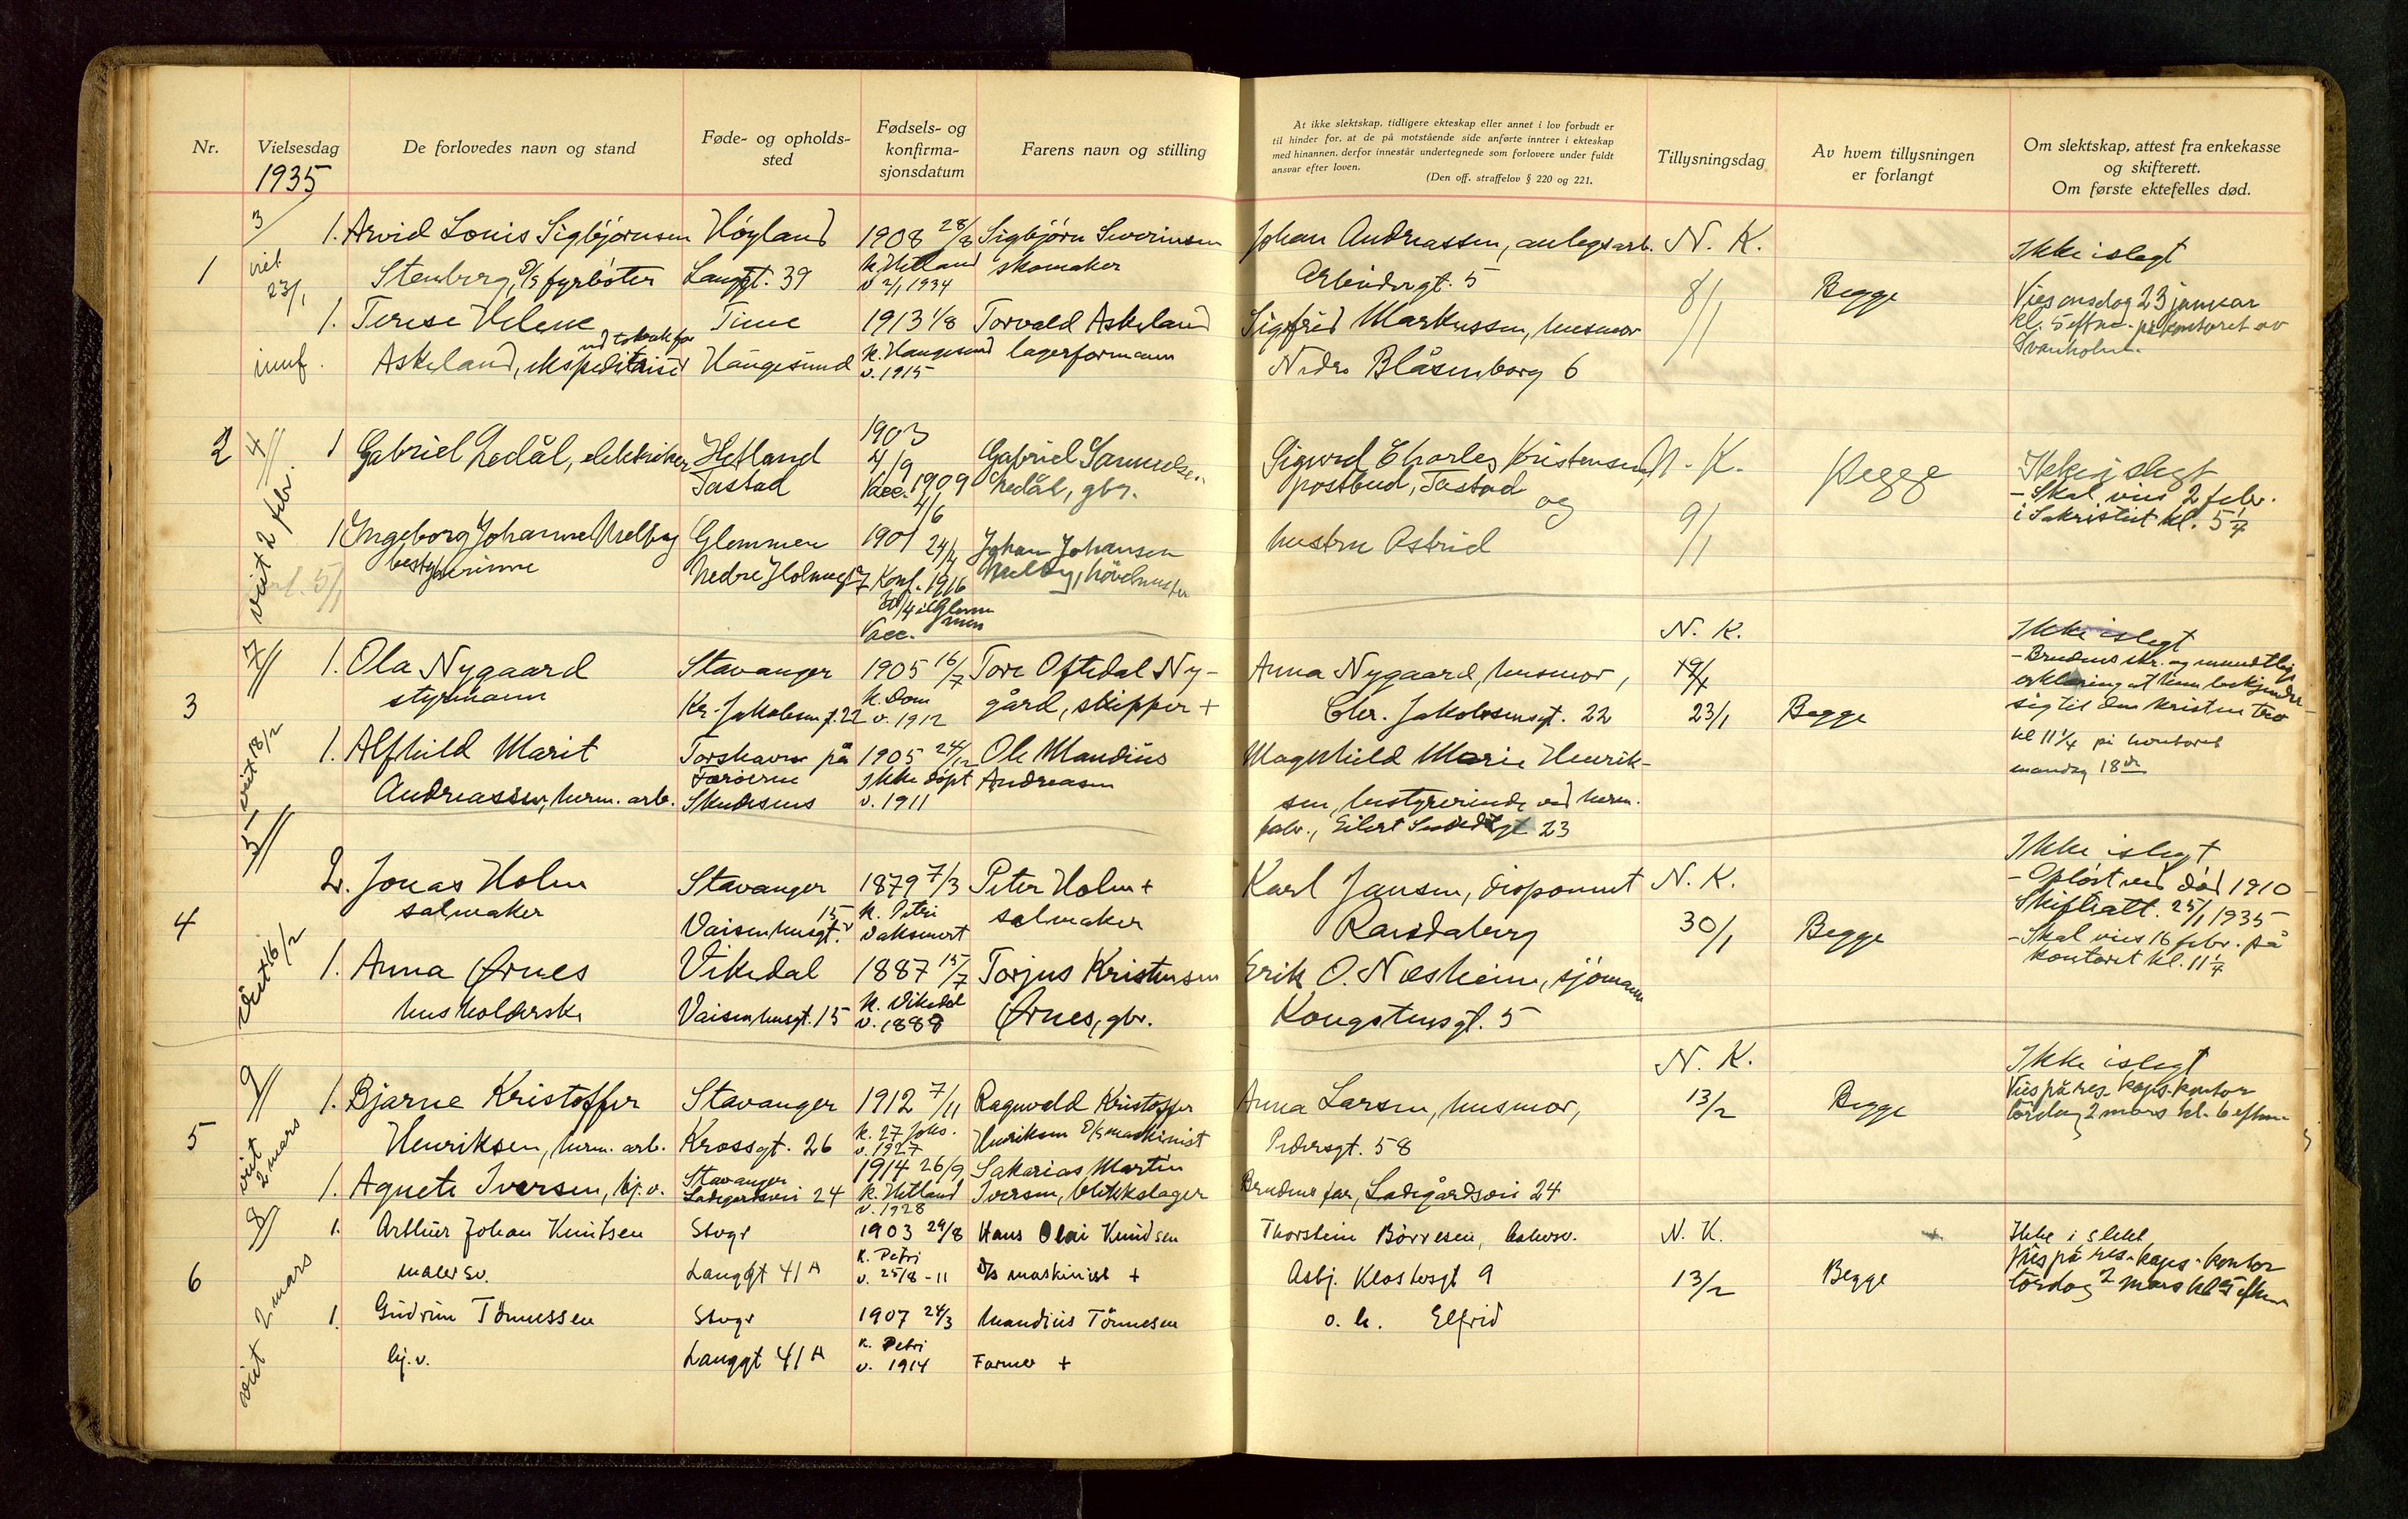 Nr.
Vielsesdag
1935
De forlovedes navn og stand
Føde- og opholds-
sted
Fødsels- og
konfirma-
sjonsdatum
Farens navn og stilling
At ikke slektskap, tidligere ekteskap eller annet i lov forbudt er
til hinder for, at de på motstående side anførte inntrer i ekteskap
med hinannen, derfor innestår undertegnede som forlovere under fuldt
ansvar efter loven.
(Den off. straffelov § 220 og 221.
Tillysningsdag
Av hvem tillysningen
er forlangt
Om slektskap, attest fra enkekasse
og skifterett.
Om første ektefelles død.
1
3/
viet
23/1
1. Arvid Louis Sigbjørnsen
Stenberg, D/S fyrbøter
Høyland
Langgt. 39
1908 28/8
k. Hetland
v 2/1 1934
Sigbjørn Severinsen
skomaker
1. Terese Helene
Askeland, ekspeditrise
Time
Haugesund
1913 1/8
k. Haugesund
v. 1915
Torvald Askeland
lagerformann
Johan Andreassen, anlegsarb.
Arbeidergt. 5
Sigfrid Markussen, husmor
Nedre Blåsenborg 6
N. K.
8/1
Begge
Ikke i slegt
Vies onsdag 23 januar
kl. 5 efterm. på kontoret av
Svanholm.
2
4//
viet 2 febr.
1 Gabriel Nedål, elektriker
Hetland
Tastad
1903
4/9
Vacc. 1909
4/6
Gabriel Samuelsen
Nedål, gbr.
1 Ingeborg Johanne Melby
bestyrerinne
Glemmen
Nedre Holmegt 7
1901 24/4
Konf. 1916
30/4 i Glem
men
Vacc.
Johan Johansen
Melby, høvelmester
Sigurd Charles Kristensen,
postbud, Tastad
og
hustru Astrid
N. K.
9/1
Begge
Ikke i slegt
- Skal vies 2 febr.
i Sakristiet kl. 5 1/4
3
7//
viet 18/2
1. Ola Nygaard
styrmann
Stavanger
Kr. Jakobsens g. 22
1905 16/7
k. Dom
v. 1912
Tore Oftedal Ny-
gård, skipper +
1. Alfhild Marit
Andreassen, herm. arb.
Torshavn på
Færøerne
Skudesnes
1905 24/12
Ikke døpt
v. 1911
Ole Mandius
Andreasen
Anna Nygaard, husmor,
Chr. Jakobsensgt. 22
Magnhild Marie Henrik-
sen, bestyrerinde ved herm.
fabr., Eilert Sundtsgt 23
N. K.
23/1
Begge
Ikke i slegt
- Brudens skr. og mundtlige
erklæring at hun bekjender
sig til den kristne tro
kl 11 1/4 på kontoret
mandag 18de
4
5//
viet 16/2
2. Jonas Holm
salmaker
Stavanger
Vaisenhusgt. 15
1879 7/3
k. Petri
vaksinert
Peter Holm +
salmaker
1. Anna Ørnes
husholderske
Vikedal
Vaisenhusgt. 15
1887 15/7
k. Vikedal
v. 1888
Torjus Kristensen
Ørnes, gbr.
Karl Jansen, disponent
Randaberg
Erik O. Næsheim, sjømann
Kongstensgt. 5
N. K.
30/1
Begge
Ikke i slegt
- Opløst ved død 1910
Skifteatt. 25/1 1935
- Skal vies 16 febr. på
kontoret kl. 11 1/4
5
9//
viet
2 mars
1. Bjarne Kristoffer
Henriksen, herm. arb.
Stavanger
Krossgt. 26
1912 7/11
k. 27 Johs.
v. 1927
Ragnvald Kristoffer
Henriksen D/S maskinist
1. Agnete Iversen, hj.v.
Stavanger
Ladegårdsvei 24
1914 26/9
k. Hetland
v. 1928
Sakarias Martin
Iversen, blikkslager
Anna Larsen, husmor,
Pedersgt. 58
Brudens far, Ladegårdsvei 24
N. K.
13/2
Begge
Ikke i slegt
Vies på res. kaps. kontor
lørdag 2 mars kl. 6 efterm
6
8//
viet 2. mars
1. Arthur Johan Knutsen
maler sv.
Stvgr
Langgt 41 A
1903 29/8
K. Petri
v. 25/8 - 11
Hans Olai Knudsen
D/S maskinist +
1. Gudrun Tönnessen
hj.v.
Stvgr
Langgt 41 A
1907 24/3
K. Petri
v. 1914
Mandius Tönnesen
Farmer +
Thorstein Børresen, bakersv.
Asbj. Klostergt 9
o. h. Elfrid
N. K.
13/2
Begge
Ikke i slekt
Vies på res. kaps. kontor
lördag 2 mars kl 5 efterm